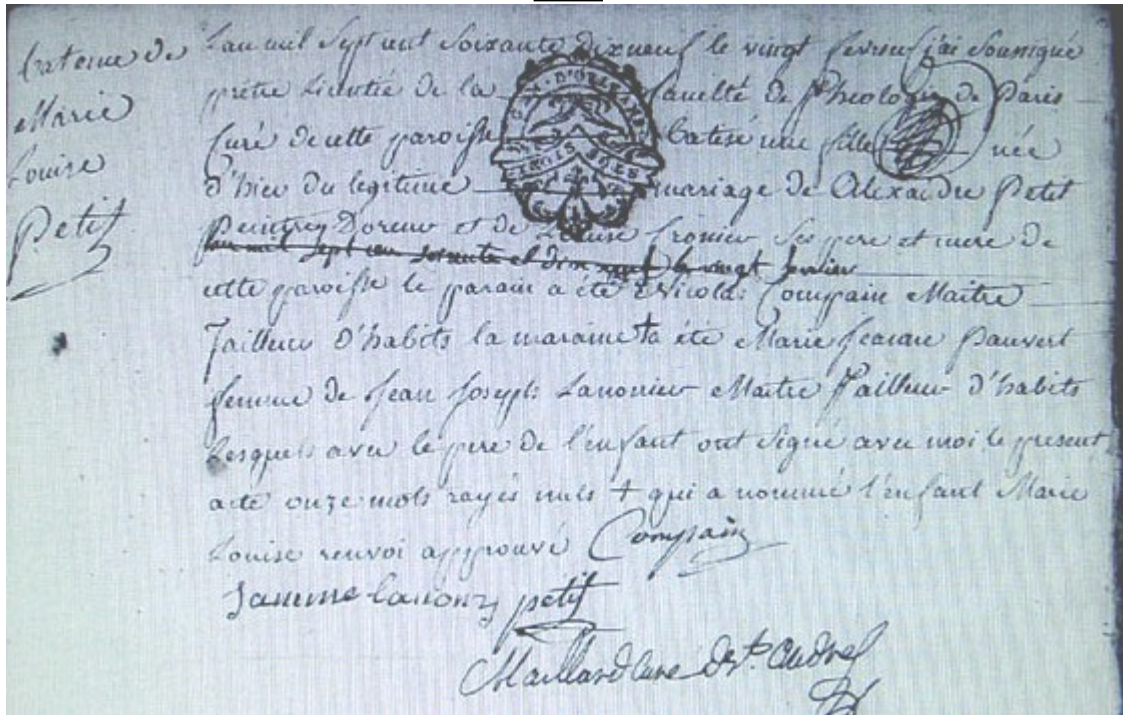 Bateme de
Marie
Louise
Petit
Lan mil Sept cent Soixante dixneuf le vingt fevrier j'ai Soussigné
prêtre Licentié de la faculté de Theologie de Paris
Curé de cette paroisse Batisé une fille née
d'hier du legitime mariage de Alexandre Petit
Peintre Doreur et de Louise Cronier Ses pere et mere de
lan mil sept cent soixante et dix neuf le vingt fevrier
cette paroisse le parain a été Nicolas Compain Maitre
Tailleur d'habits la maraine + a été Marie Jeanne Pauvert
femme de Jean Joseph Lanonier Maitre Tailleur d'habits
Lesquels avec le pere de l'enfant ont Signé avec moi le present
acte onze mots rayés nuls + qui a nommé l'enfant Marie
Louise renvoi approuvé Compain
petit
Maillard Curé de St. Andre